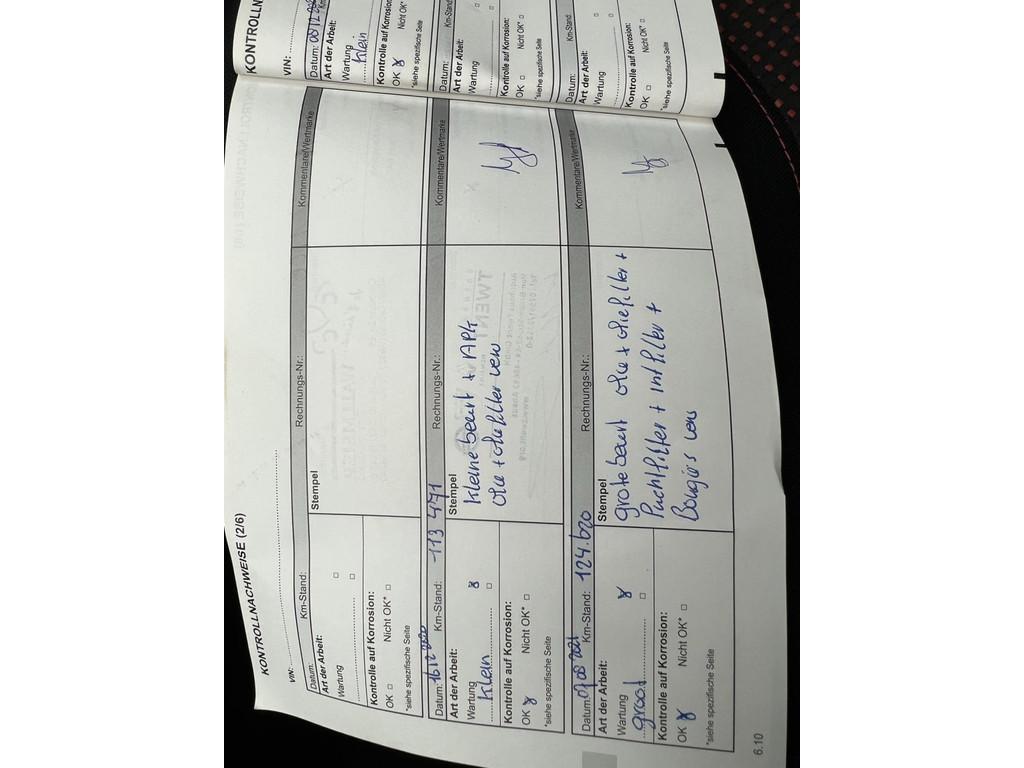 KONTROLLNACHWEISE (2/6)
VIN:
Datum: Km-Stand: Rechnungs-Nr.: Kommentare/Wertmarke
Art der Arbeit: Stempel
Wartung □
□
Kontrolle auf Korrosion:
OK □ Nicht OK* □
*siehe spezifische Seite
Datum: 16 12 2020 Km-Stand: 113 471 Rechnungs-Nr.: Kommentare/Wertmarke
Art der Arbeit: Stempel
Wartung kleine beurt + APK
Klein □ olie + oliefilter verv
Kontrolle auf Korrosion:
OK Nicht OK* □
*siehe spezifische Seite
Datum: 07 08 2021 Km-Stand: 124.620 Rechnungs-Nr.: Kommentare/Wertmarke
Art der Arbeit: Stempel
Wartung grote beurt olie + oliefilter +
groot □ Luchtfilter + intfilter +
Bougies verv
Kontrolle auf Korrosion:
OK Nicht OK* □
*siehe spezifische Seite
6.10
KONTROLLN
VIN:
Datum: 08 12 Km
Art der Arbeit:
Wartung
Klein
Kontrolle auf Korrosion:
OK Nicht OK* □
*siehe spezifische Seite
Datum: Km-Stand
Art der Arbeit:
Wartung □
□
Kontrolle auf Korrosion:
OK □ Nicht OK* □
*siehe spezifische Seite
Datum: Km-Stand
Art der Arbeit:
Wartung □
□
Kontrolle auf Korrosion:
OK □ Nicht OK* □
*siehe spezifische Seite